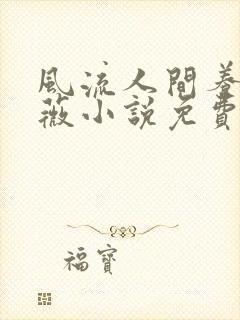 風流人間養
薇小說免費
福寶